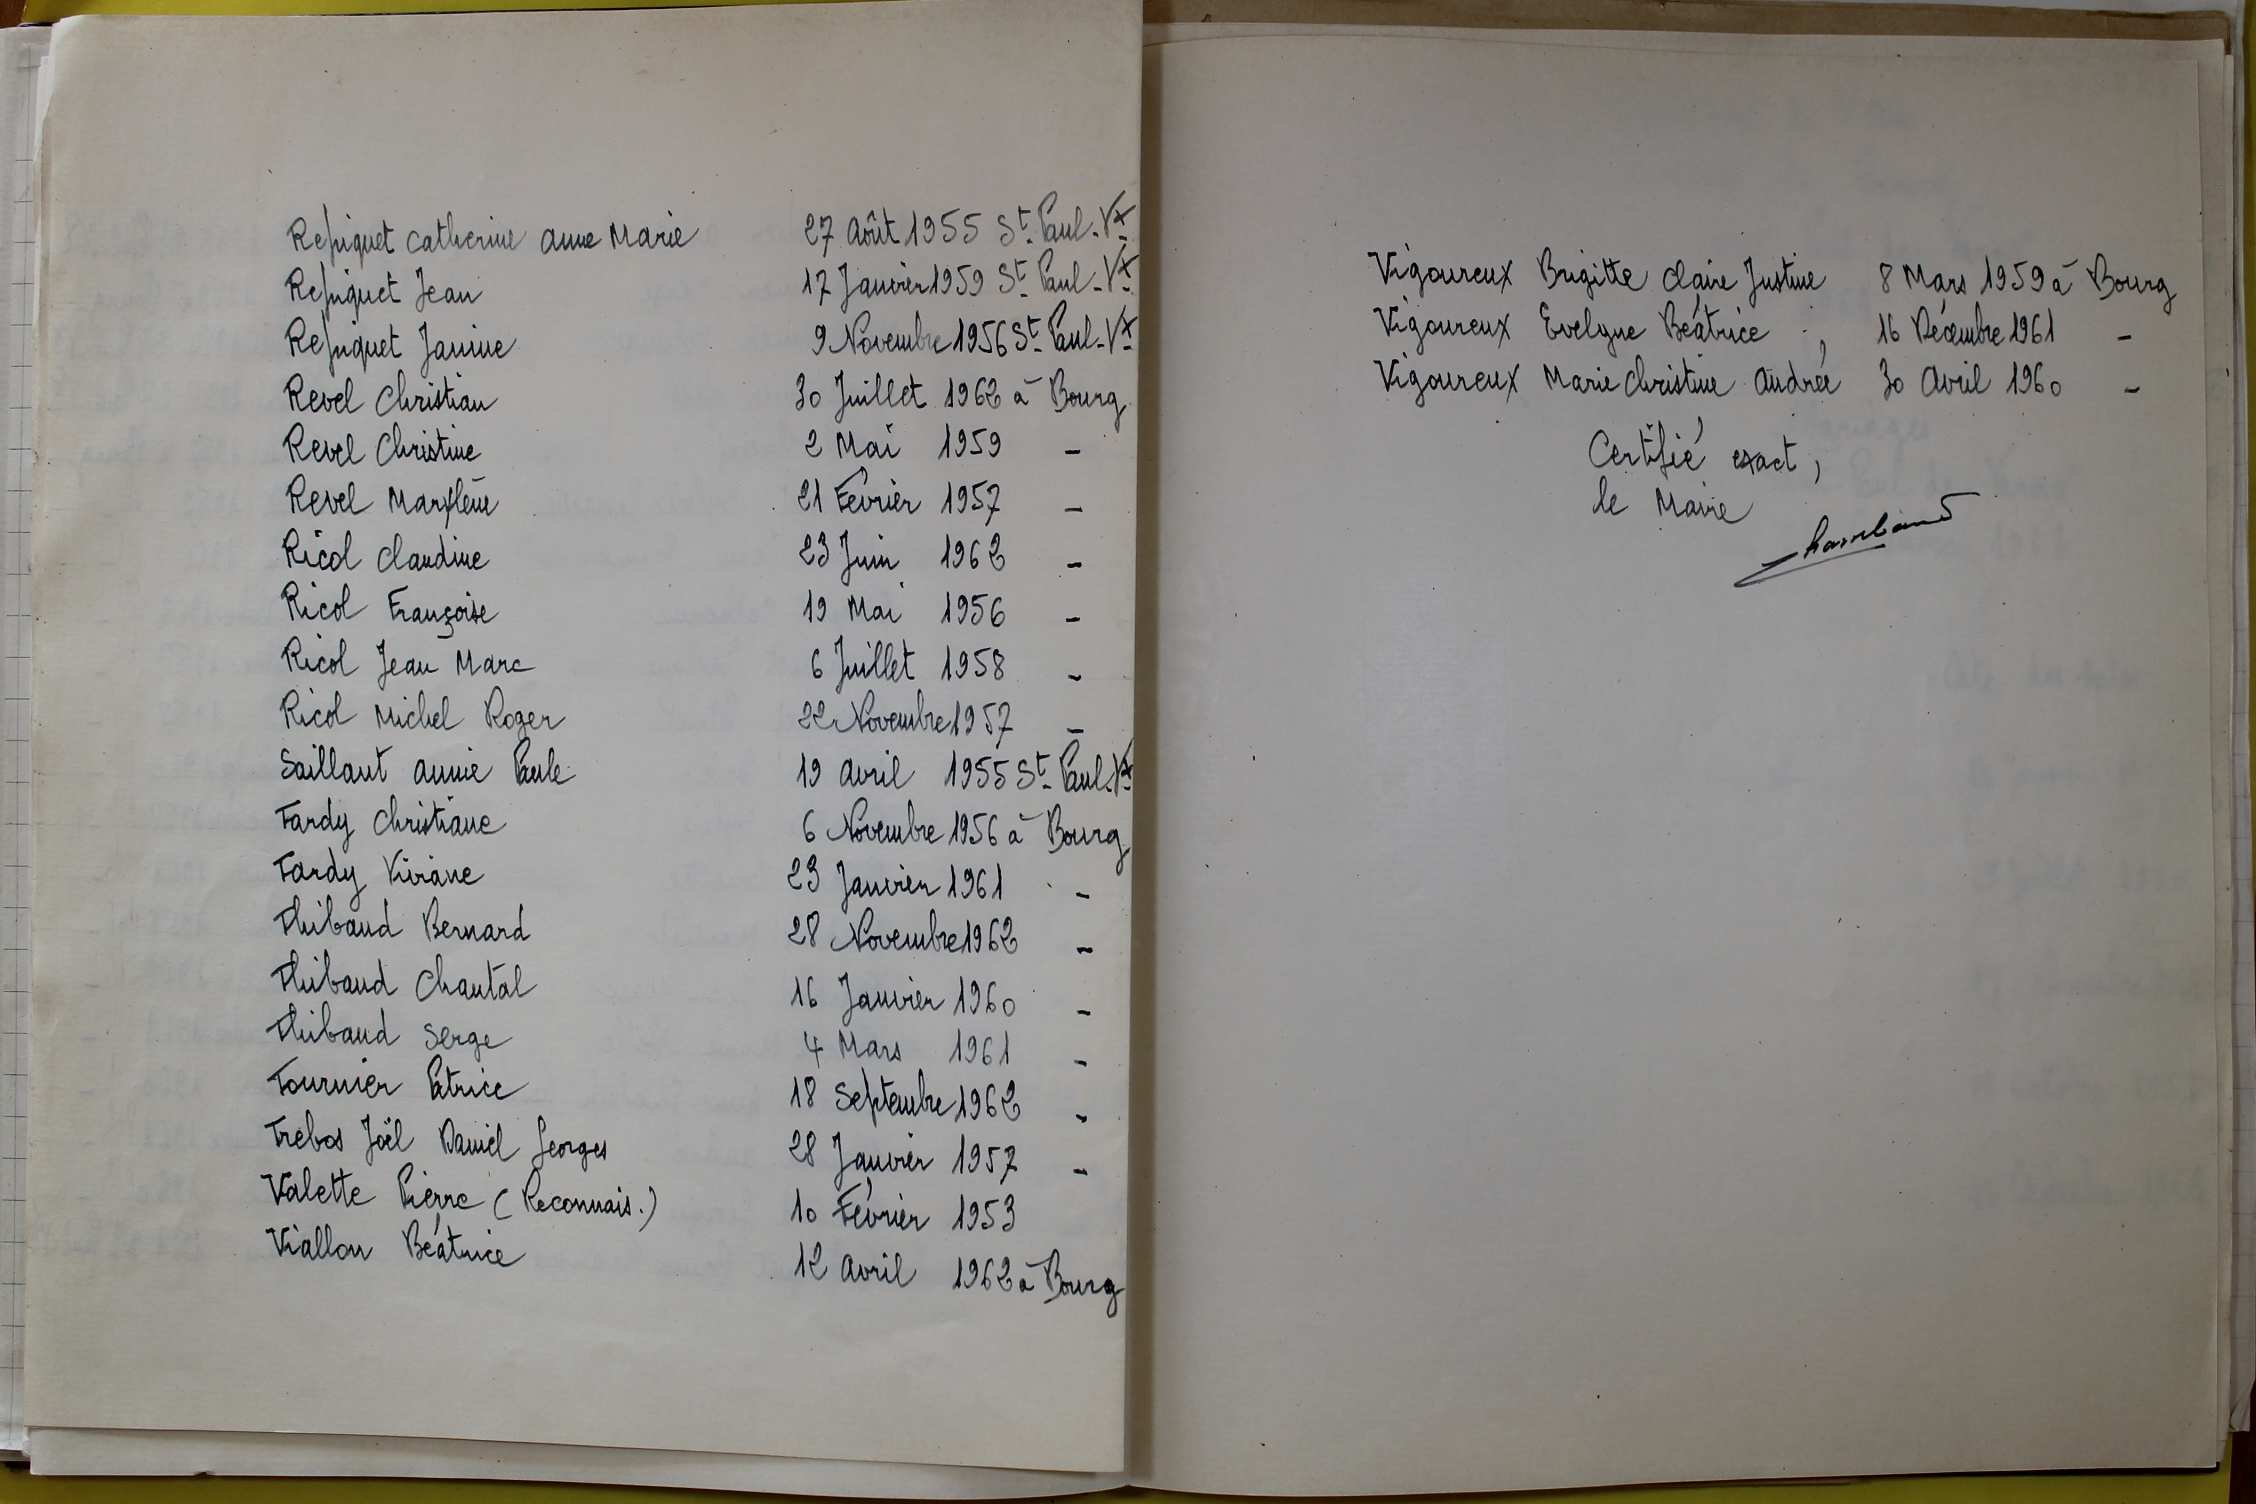 Repiquet Catherine Anne Marie 27 Août 1955 St. Paul-Vx
Repiquet Jean 17 Janvier 1959 St. Paul-Vx
Repiquet Janine 9 Novembre 1956 St. Paul-Vx
Revel Christian 30 Juillet 1962 à Bourg
Revel Christine 2 Mai 1959 -
Revel Marylène 21 Février 1957 -
Ricol Claudine 23 Juin 1962 -
Ricol Françoise 19 Mai 1956 -
Ricol Jean Marc 6 Juillet 1958 -
Ricol Michel Roger 22 Novembre 1957 -
Saillant Annie Paule 19 Avril 1955 St. Paul-Vx
Tardy Christiane 6 Novembre 1956 à Bourg
Tardy Viviane 23 Janvier 1961 -
Thibaud Bernard 28 Novembre 1962 -
Thibaud Chantal 16 Janvier 1960 -
Thibaud Serge 4 Mars 1961 -
Tournier Patrice 18 Septembre 1962 -
Trebos Joël Daniel Georges 28 Janvier 1957 -
Valette Pierre (Reconnais.) 10 Février 1953
Viallon Béatrice 12 Avril 1962 à Bourg
Vigoureux Brigitte Claire Justine 8 Mars 1959 à Bourg
Vigoureux Evelyne Béatrice 16 Décembre 1961 -
Vigoureux Marie Christine Andrée 30 Avril 1960 -
Certifié exact,
le Maire